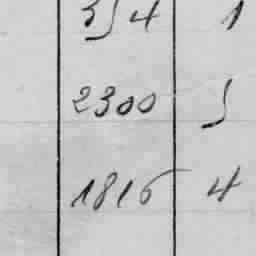 354 1
2300 5
1816 4